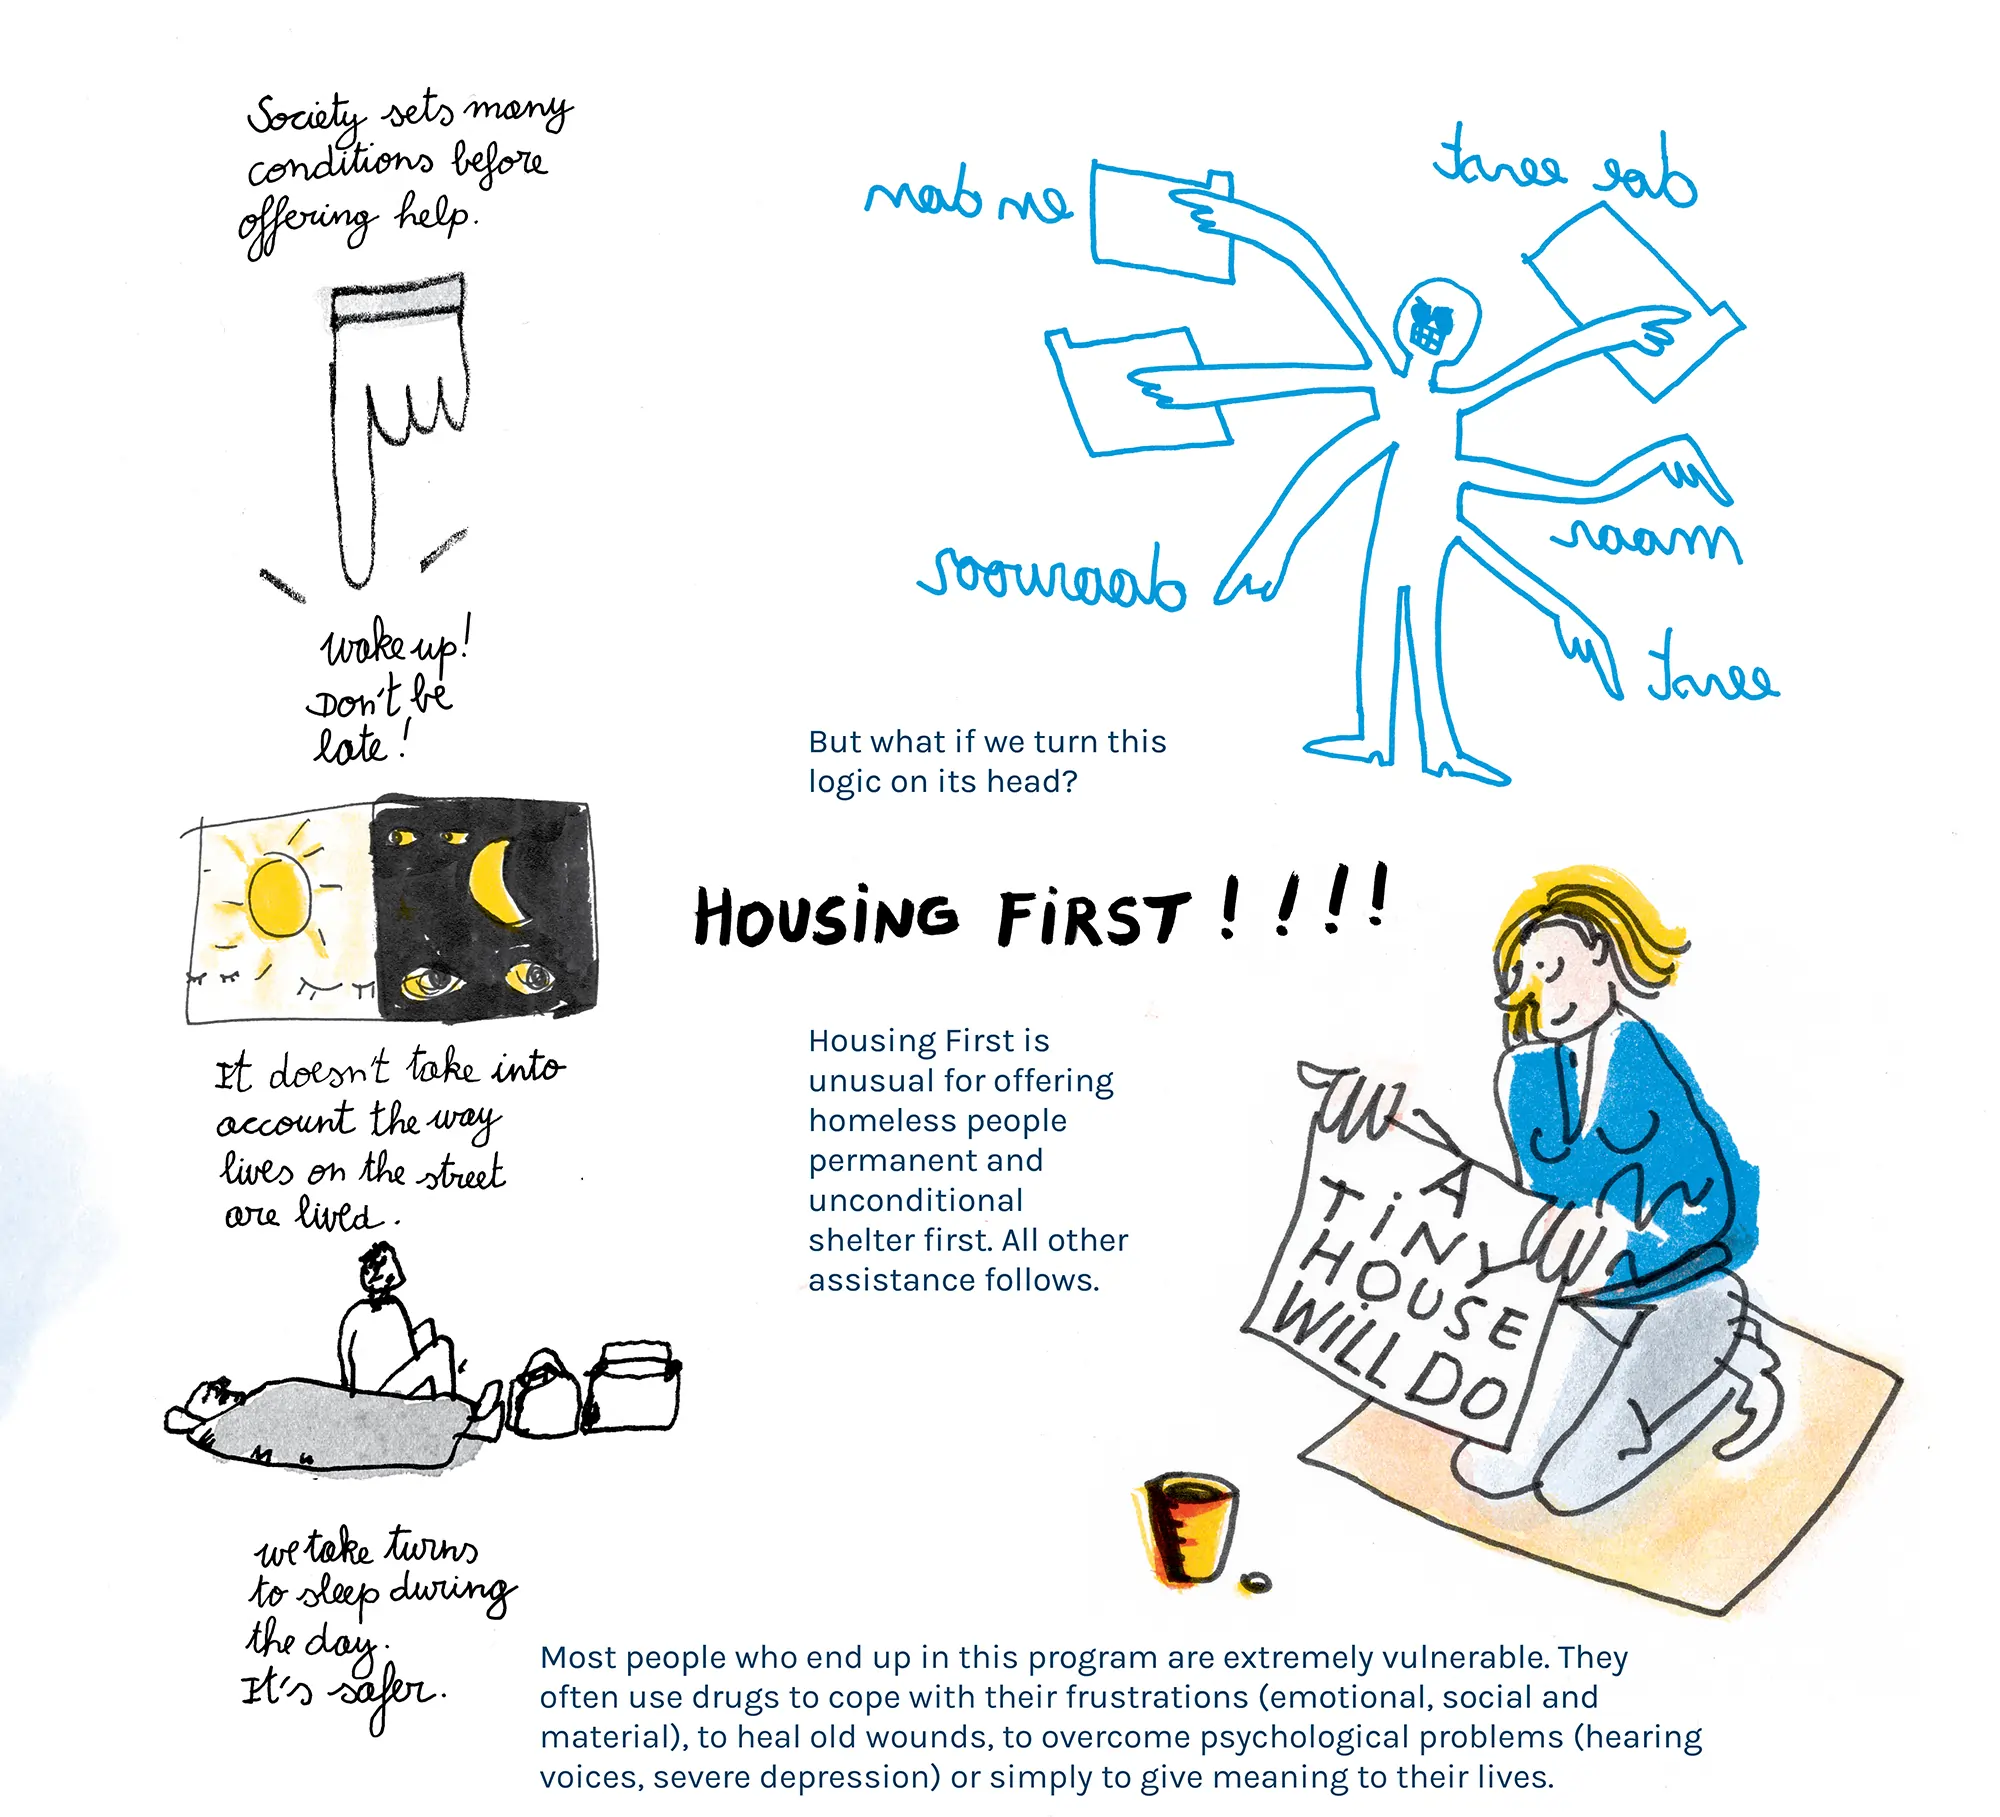 Society sets many
conditions before
offering help.
wake up!
Don't be
late!
It doesn't take into
account the way
lives on the street
are lived.
we take turns
to sleep during
the day.
It's safer.
But what if we turn this
logic on its head?
HOUSING FIRST!!!!
Housing First is
unusual for offering
homeless people
permanent and
unconditional
shelter first. All other
assistance follows.
A
TINY
HOUSE
WILL DO
Most people who end up in this program are extremely vulnerable. They
often use drugs to cope with their frustrations (emotional, social and
material), to heal old wounds, to overcome psychological problems (hearing
voices, severe depression) or simply to give meaning to their lives.